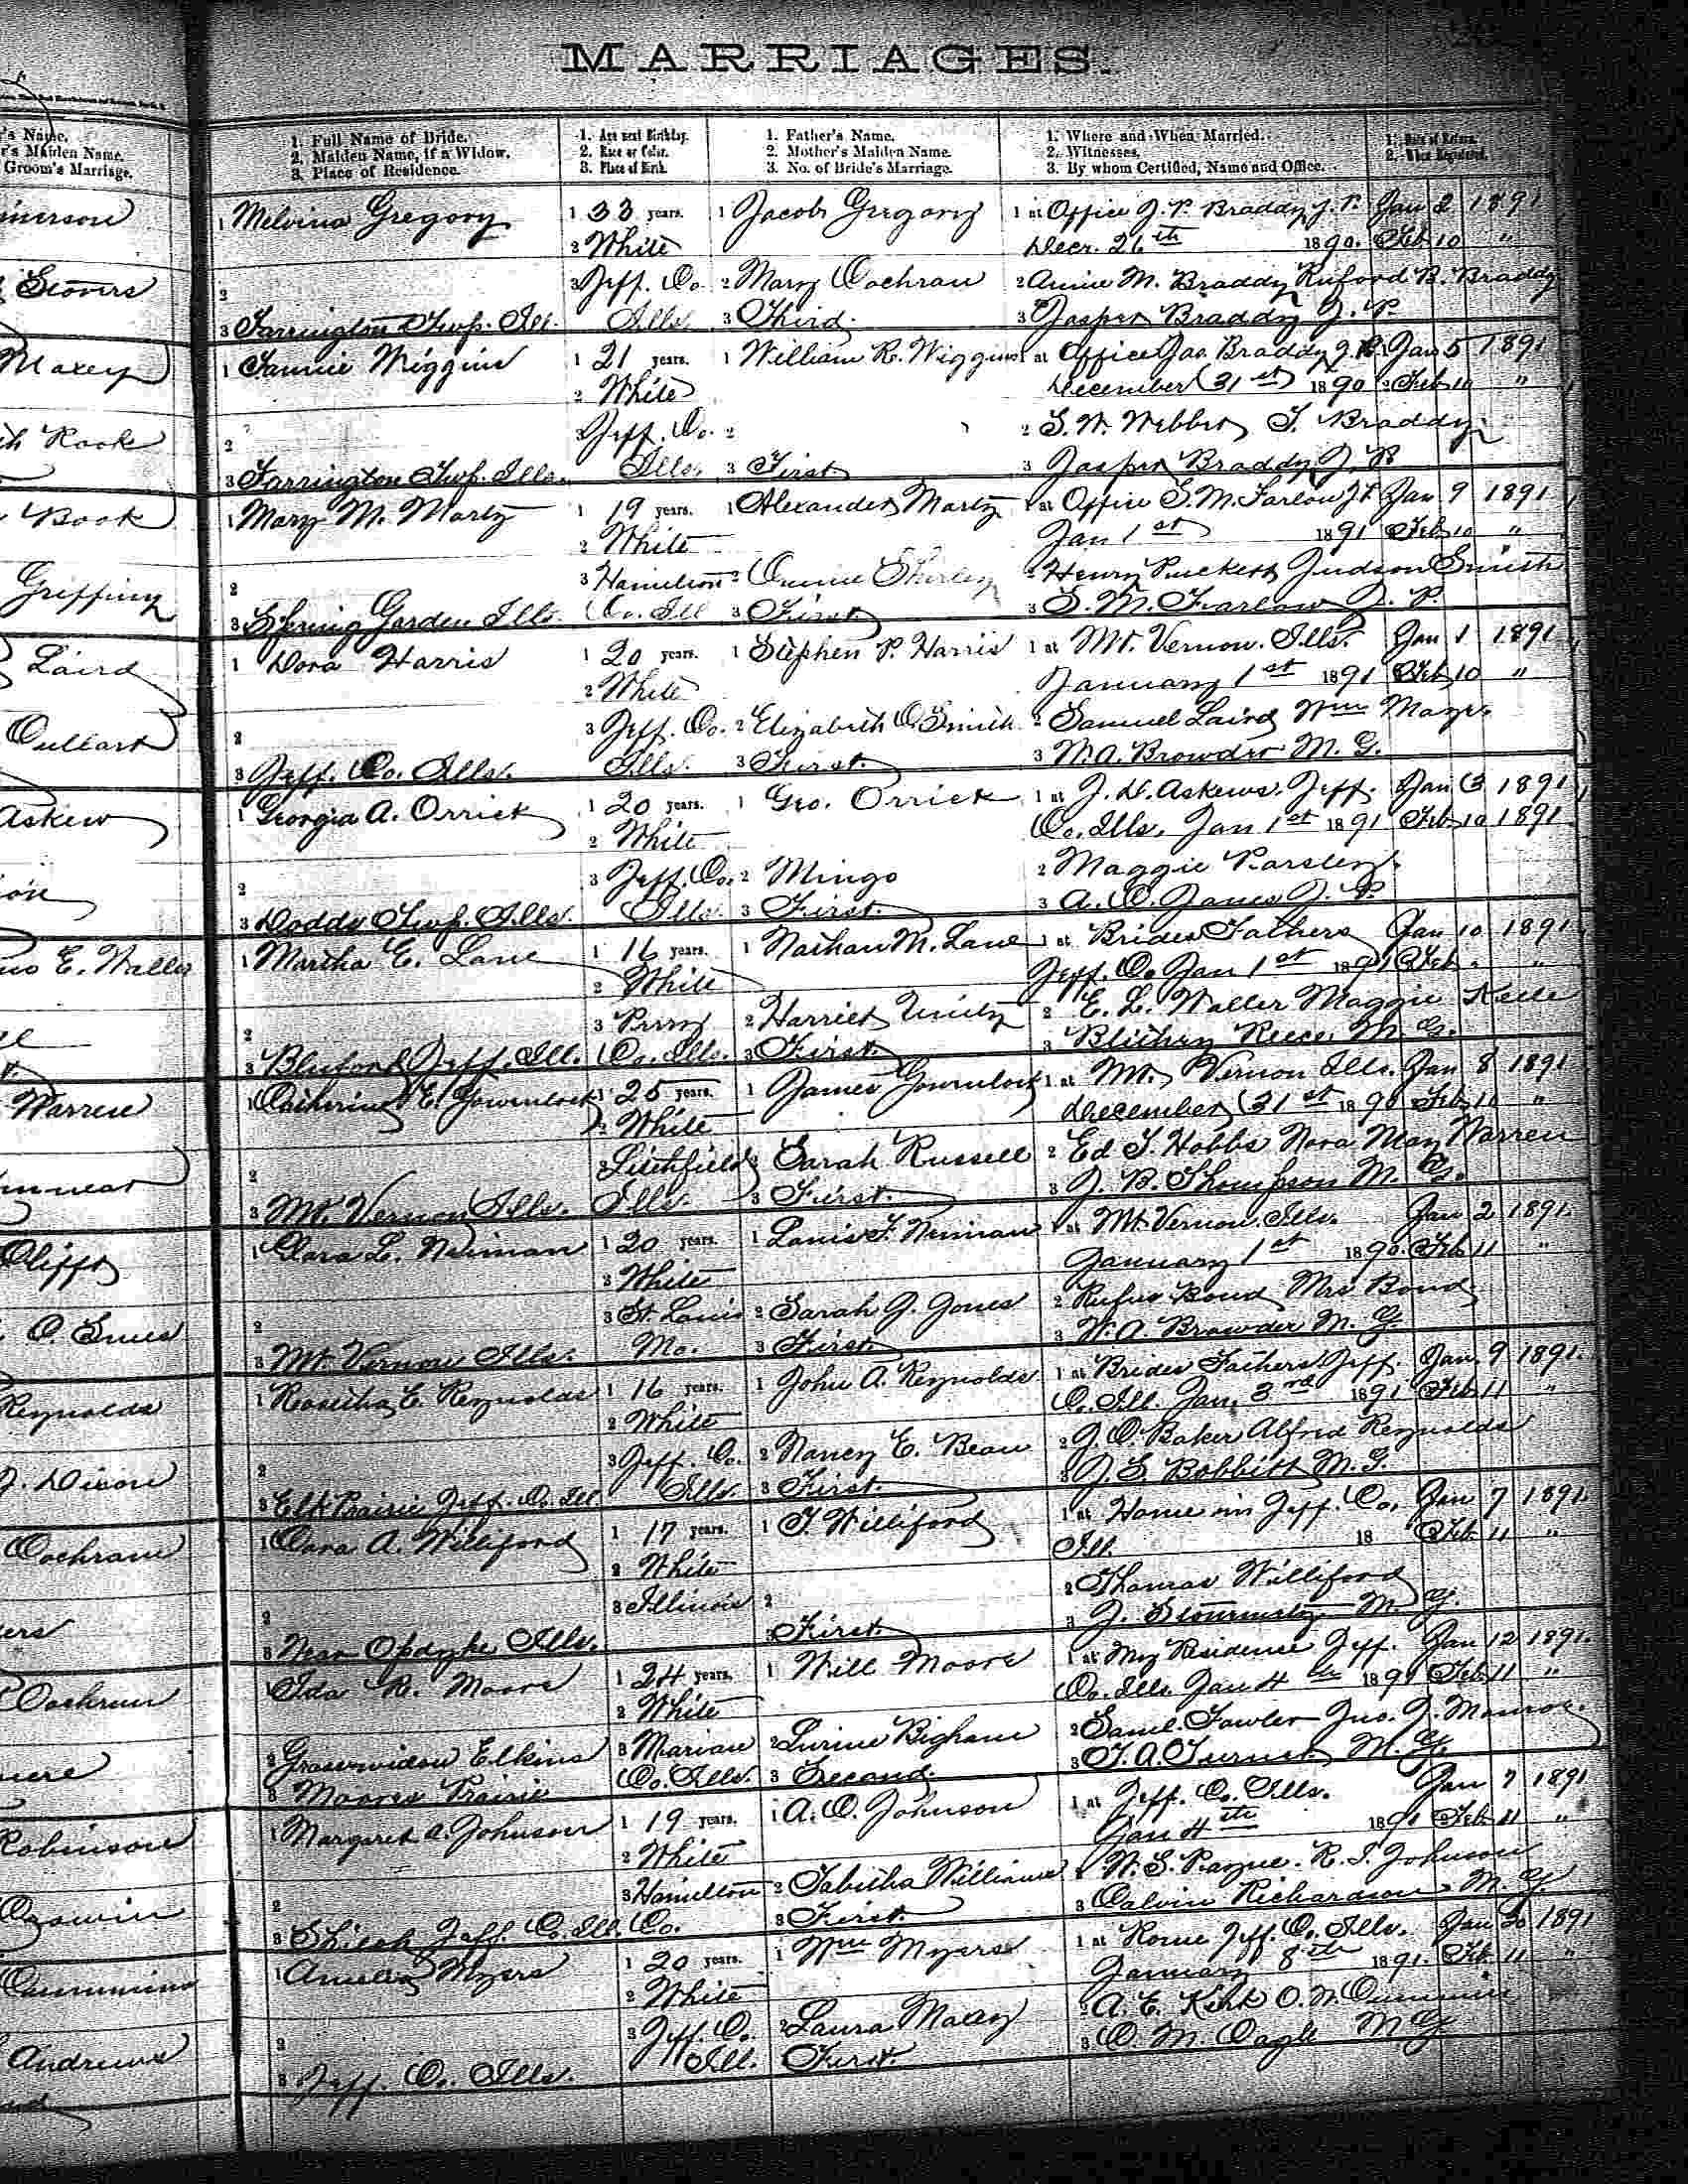 MARRIAGES.
's Name.
r's Maiden Name.
Groom's Marriage.
1. Full Name of Bride.
2. Maiden Name, if a Widow.
3. Place of Residence.
1. Age next Birthday.
2. Race or Color.
3. Place of Birth.
1. Father's Name.
2. Mother's Maiden Name.
3. No. of Bride's Marriage.
1. Where and When Married.
2. Witnesses.
3. By whom Certified, Name and Office.
1. Date of Return.
2. When Registered.
1 Melvina Gregory 1 33 years. 1 Jacob Gregory 1 at Office J. P. Braddy J. P. Jan 2 1891
2 White Decr. 26th 1890. Feb 10 "
Stovers 2 3 Jeff. Co. 2 Mary Cochran 2 Annie M. Braddy Ruford B. Braddy
3 Farrington Twp. Ill. Ills. 3 Third. 3 Jasper Braddy J. P.
Maxey 1 Fannie Wiggins 1 21 years. 1 William R. Wiggins 1 at Office Jas. Braddy J. P. 1 Jan 5 1891
2 White December 31st 1890 2 Feb 10 "
Rook 2 3 Jeff. Co. 2 2 S. W. Webber J. Braddy
3 Farrington Twp. Ills. Ills. 3 First 3 Jasper Braddy J. P.
Book 1 Mary M. Martz 1 19 years. 1 Alexander Martz 1 at Office S. M. Farlow J. P. Jan 9 1891
2 White Jan 1st 1891 Feb 10 "
Griffing 2 3 Hamilton 2 Shirley 2 Henry Puckett Judson Smith
3 Spring Garden Ills. Co. Ill 3 First. 3 S. M. Farlow J. P.
Laird 1 Dora Harris 1 20 years. 1 Stephen P. Harris 1 at Mt. Vernon. Ills. Jan 1 1891
2 White January 1st 1891 Feb 10 "
2 3 Jeff. Co. 2 Elizabeth O Smith 2 Samuel Laird Wm Maye.
3 Jeff. Co. Ills. Ills. 3 First. 3 W. A. Browder M. G.
Askew 1 Georgia A. Orrick 1 20 years. 1 Geo. Orrick 1 at J. D. Askews. Jeff. Jan 3 1891
2 White Co. Ills. Jan 1st 1891 Feb 10 1891
2 3 Jeff. Co. 2 Mingo 2 Maggie Parsley.
3 Dodds Twp. Ills. Ills. 3 First. 3 A. C. Jones J. P.
E. Waller 1 Martha E. Lane 1 16 years. 1 Nathan M. Lane 1 at Brides Fathers Jan 10 1891
2 White Jeff. Co Jan 1st 1891 Feb "
2 3 Perry 2 Harriet Unity 2 E. L. Waller Maggie Kelle
3 Bluford Jeff. Ill. Co. Ills. 3 First. 3 Reece, M. G.
Warren 1 Catherine E. Gowenlock 1 25 years. 1 James Gowenlock 1 at Mt. Vernon Ills. Jan 8 1891
2 White December 31st 1890 Feb 10 "
2 3 Litchfield 2 Sarah Russell 2 Ed T. Hobbs Nora May Warren
3 Mt. Vernon Ills. Ills. 3 First. 3 J. B. Thompson M. G.
Clifft 1 Clara L. Neiman 1 20 years. 1 Louis F. Neiman 1 at Mt Vernon. Ills. Jan 2 1891.
2 White January 1st 1890. Feb 11 "
2 3 St. Louis 2 Sarah J. Jones 2 Rufus Bond Mrs Bond
3 Mt. Vernon Ills. Mo. 3 First. 3 W. A. Browder M. G.
Reynolds 1 Rosetha E. Reynolds 1 16 years. 1 John A. Reynolds 1 at Brides Fathers Jeff. Jan. 9 1891.
2 White Co. Ill. Jan. 3rd 1891 Feb 11 "
J. Dixon 2 3 Jeff. Co. 2 Nancy E. Bean 2 J. O. Baker Alfred Reynolds
3 Elk Prairie Jeff. Co. Ill Ills 3 First. 3 J. S. Bobbitt M. G.
Cochran 1 Cora A. Williford 1 17 years. 1 T. Williford 1 at Home in Jeff. Co. Jan 7 1891.
2 White Ill. 18 Feb 11 "
2 3 Illinois 2 2 Thomas Williford
3 Near Opdyke Ills. 3 First. 3 J. M. G.
Cochrun 1 Ida R. Moore 1 24 years. 1 Will Moore 1 at My Residence Jeff. Jan 12 1891.
2 White Co. Ills Jan 4th 1891 Feb 11 "
2 Grasswidow Elkins 3 Marion 2 Bigham 2 Saml. Fowler Jno. J. Monroe.
3 Moores Prairie Co. Ills. 3 Second. 3 T. A. Turner M. G.
Robinson 1 Margaret A. Johnson 1 19 years. 1 A. C. Johnson 1 at Jeff. Co. Ills. Jan 7 1891
2 White Jan 4th 1891 Feb 11 "
2 3 Hamilton 2 Tabitha Williams 2 W. S. Payne. R. J. Johnson
3 Shiloh Jeff. Co. Ill. Co. 3 First. 3 Calvin Richardson M. G.
1 Amelia Myers 1 20 years. 1 Wm Myers 1 at Rome Jeff. Co. Ills. Jan 20 1891
2 White January 8th 1891. Feb 11 "
Andrews 2 3 Jeff. Co. 2 Laura Maxey 2 A. E. Kirk O. W.
3 Jeff. Co. Ills. Ill. First. 3 C. M. Cagle M G